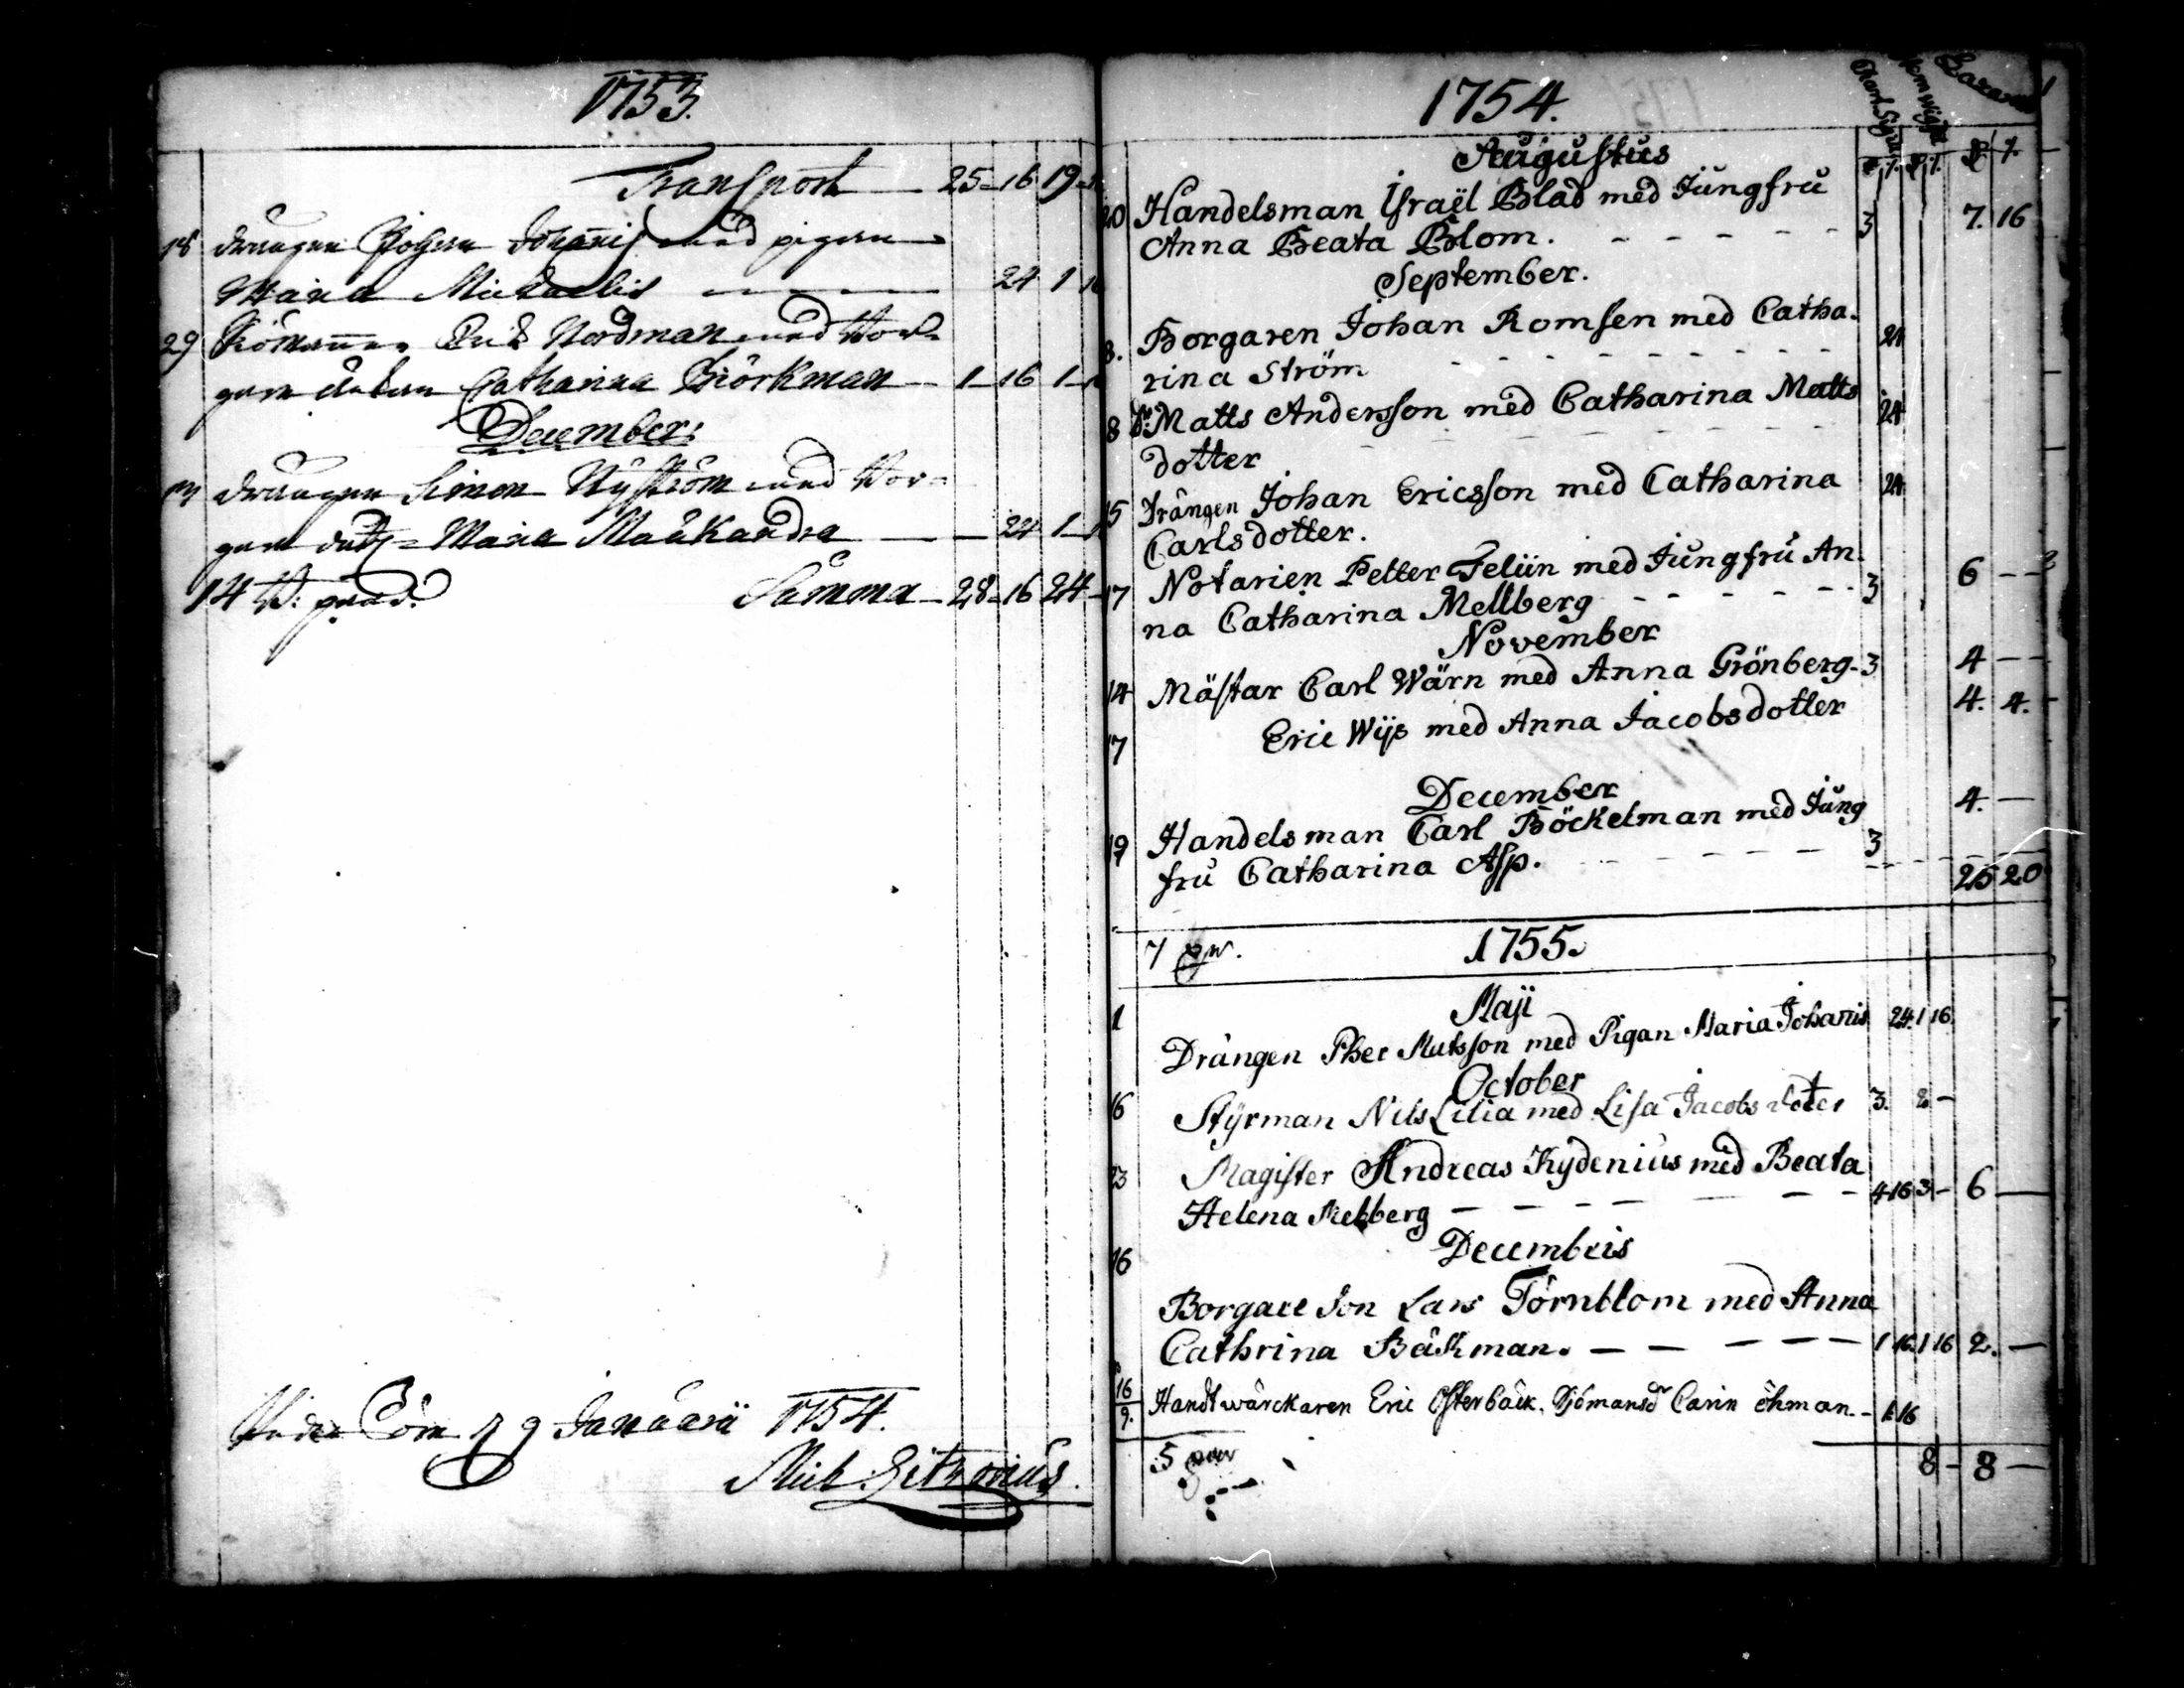 1753.
Transport 25 16 19
18 drängen Johan Johannis med pigan
Maria Michaelis 24 1
29 Erik Nordman med Bor-
gare Catharina Björkman 1 16 1
December
drängen Simon Nyström med Bor-
gare Maria 24 1
14 Summa 28 16 24
9 Januarii 1754.
Mich. Gitzonius.
1754.
Augustus
20 Handelsman Israël Blad med Jungfru
Anna Beata Blom. 3 7. 16
September.
8. Borgaren Johan Romsen med Catha-
rina Ström 24
8 Do Matts Andersson med Catharina Matts
dotter 24
15 Drängen Johan Ericsson med Catharina
Carlsdotter. 24
17 Notarien Petter Feliin med Jungfru An
na Catharina Mellberg 3 6
November
14 Mästar Carl Wärn med Anna Grönberg 3 4
17 Eric Wijs med Anna Jacobsdotter 4. 4.
December
19 Handelsman Carl Böckelman med Jung
fru Catharina Asp. 3 4.
25 20
7 par. 1755.
Maji
1 Drängen Pher Matsson med Pigan Maria Johanis 24. 1 16.
October
16 Styrman Nils Lilia med Lisa Jacobs doter 3. 2
23 Magister Andreas Kydenius med Beata
Helena Mellberg 4 16 3 6
Decembris
16
Borgare Son Lars Törnblom med Anna
Cathrina Backman. 1 16. 1 16 2.
16/9. Handtwärckaren Eric Österback. Sjömansd Carin öhman. 1 16
5 par 8 8